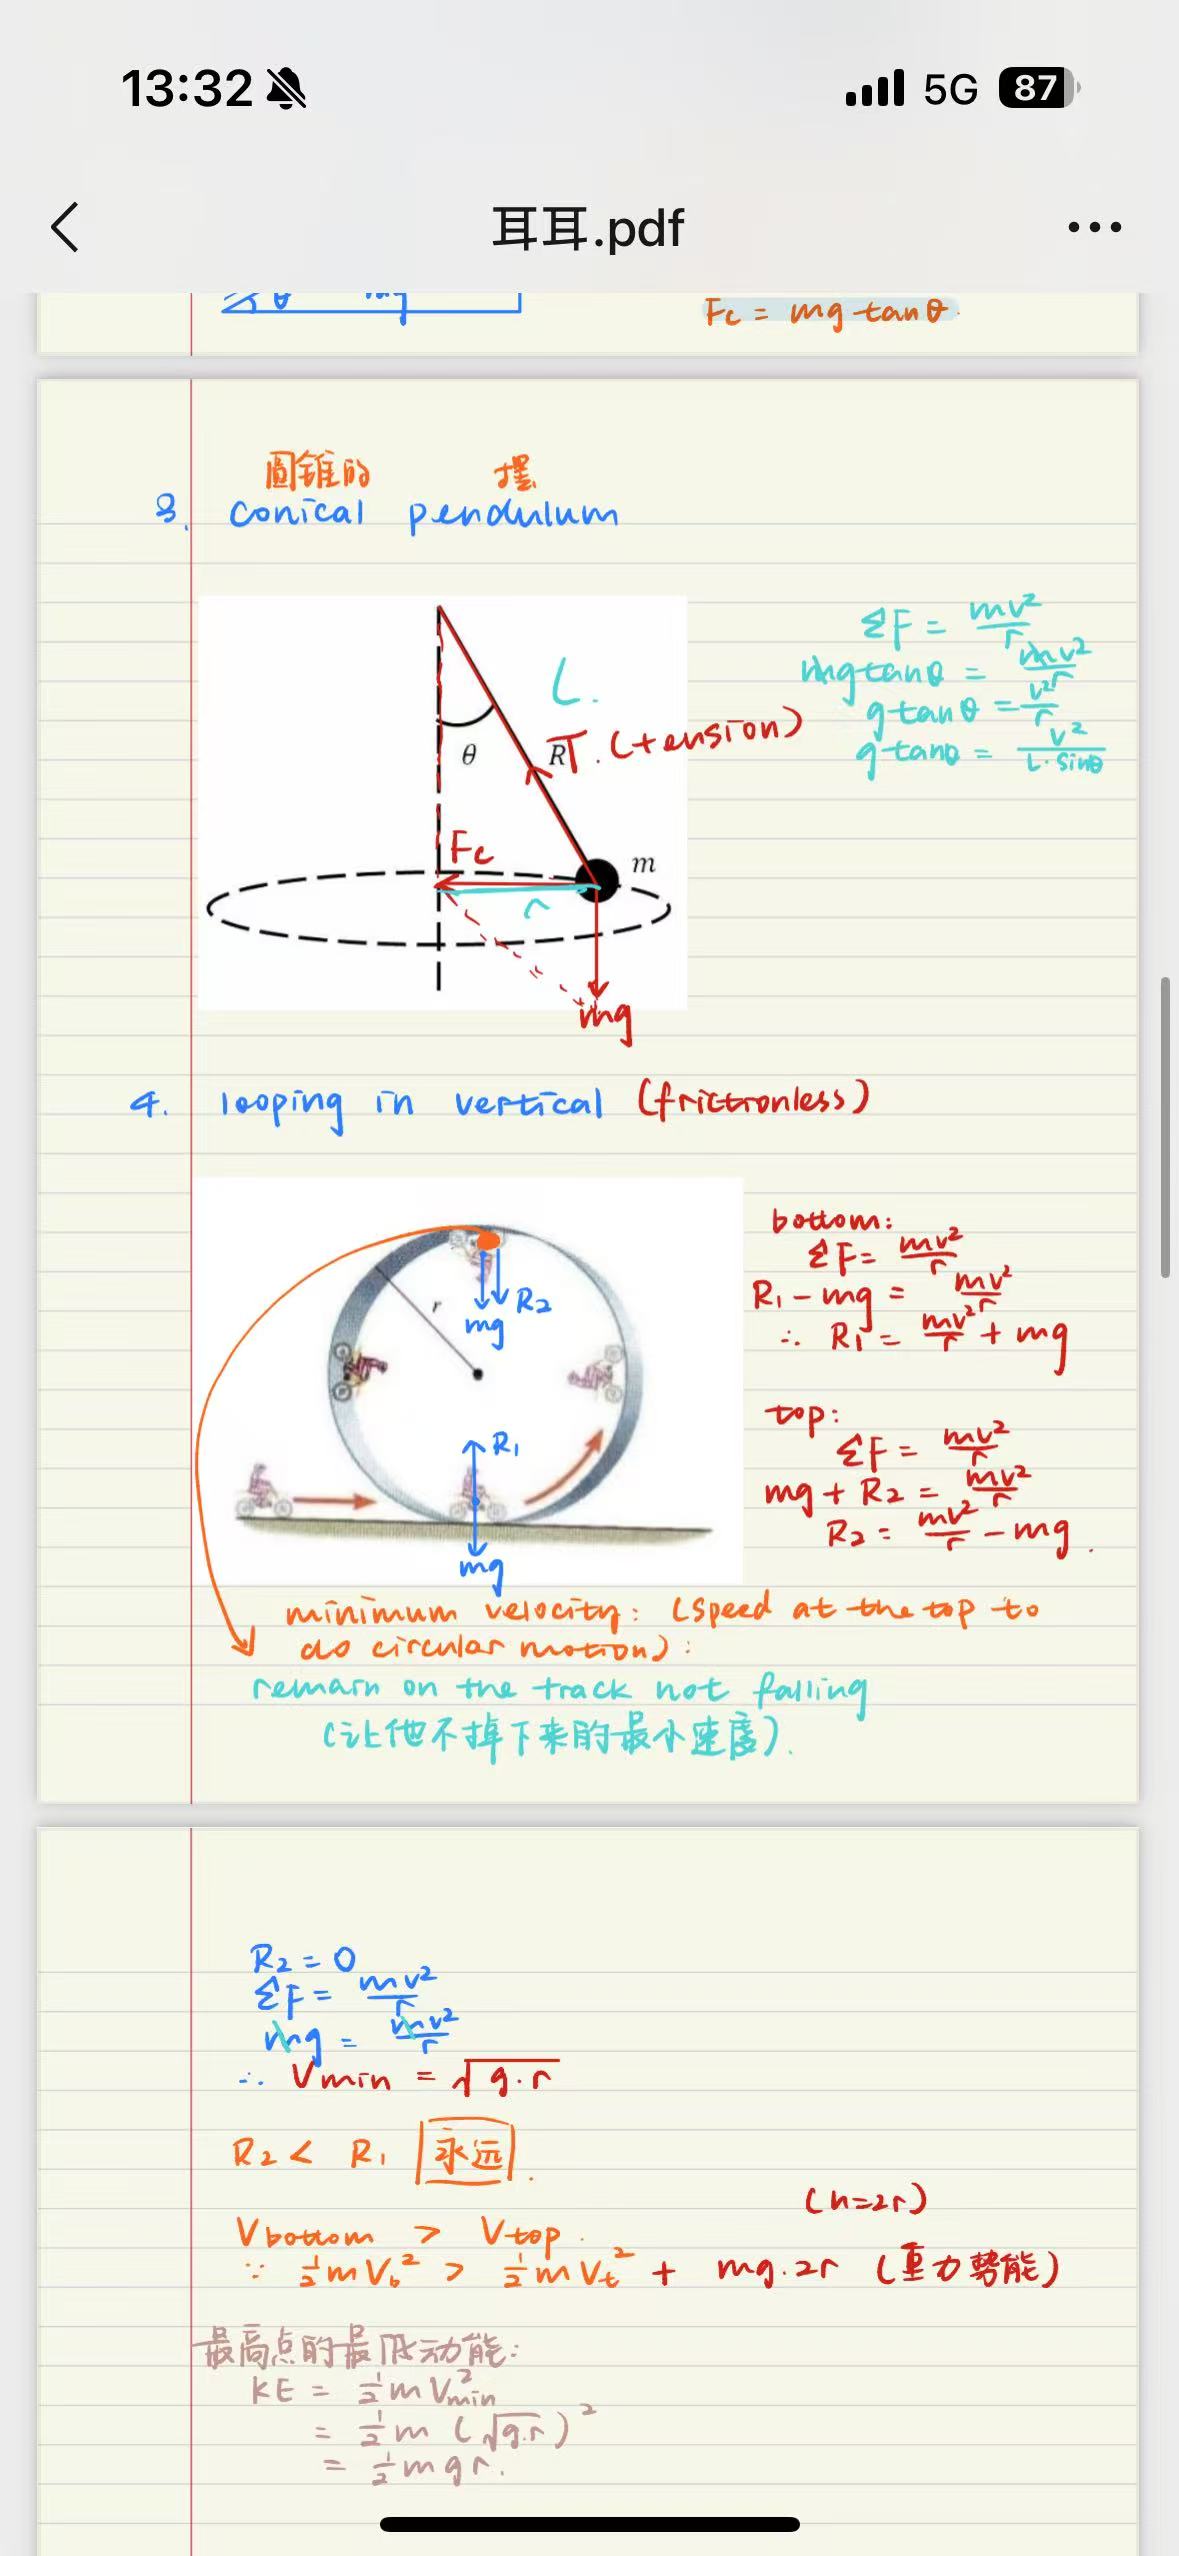 13:32 5G 87
耳耳.pdf
Fc = mg tanθ.
圆锥的 摆
3. conical pendulum
L.
θ R T. (tension)
Fc
m
r
mg
ΣF = mv²/r
mgtanθ = mv²/r
gtanθ = v²/r
gtanθ = v²/L·sinθ
4. looping in vertical (frictionless)
r
mg R₂
R₁
mg
bottom:
ΣF = mv²/r
R₁ - mg = mv²/r
∴ R₁ = mv²/r + mg
top:
ΣF = mv²/r
mg + R₂ = mv²/r
R₂ = mv²/r - mg.
minimum velocity: (speed at the top to
do circular motion):
remain on the track not falling
(让他不掉下来的最小速度).
R₂ = 0
ΣF = mv²/r
mg = mv²/r
∴ Vmin = √g.r
R₂ < R₁ 永远.
(h=2r)
Vbottom > Vtop.
∵ ½mVb² > ½mVt² + mg.2r (重力势能)
最高点的最低动能:
KE = ½mV²min
= ½m(√g.r)²
= ½mgr.